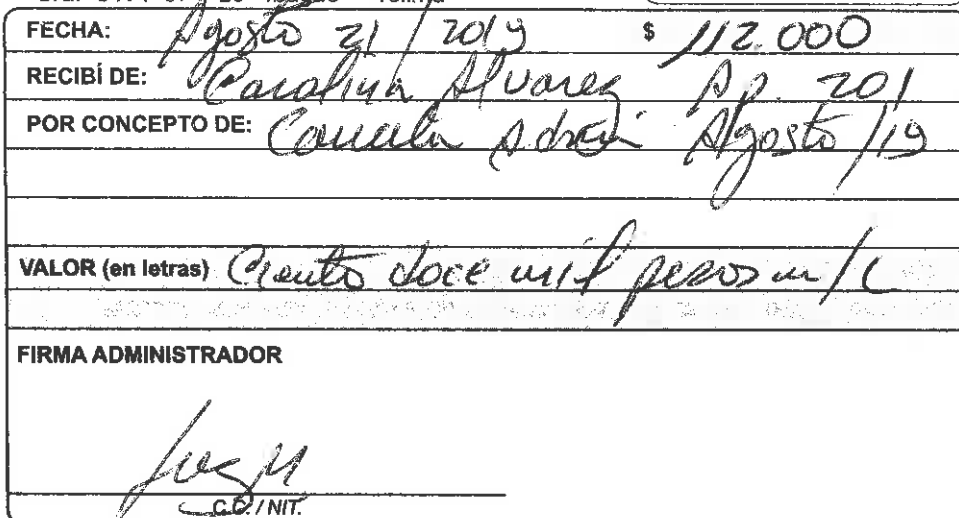 FECHA: Agosto 21 / 2019 $ 112.000
RECIBÍ DE: Carolina Alvarez Ap. 201
POR CONCEPTO DE: Cancela Admón Agosto /19
VALOR (en letras) Ciento doce mil pesos m/c
FIRMA ADMINISTRADOR
C.C. / NIT.